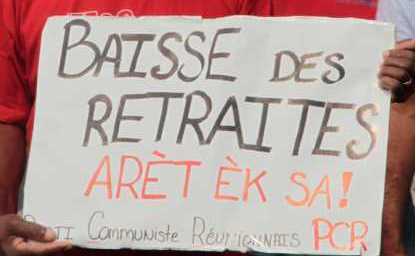 BAISSE DES
RETRAITES
ARÈT ÈK SA!
Communiste Réunionnais PCR